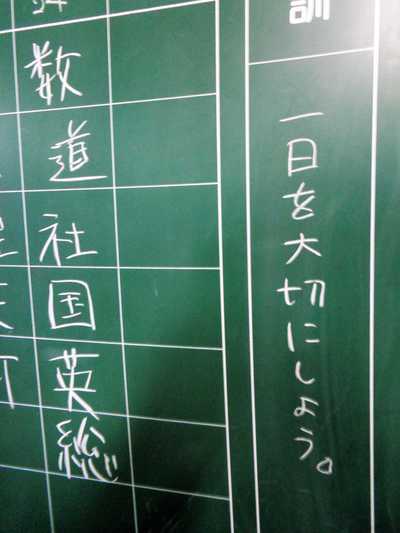 訓
一日を大切にしよう。
数
道
社
国
英
総